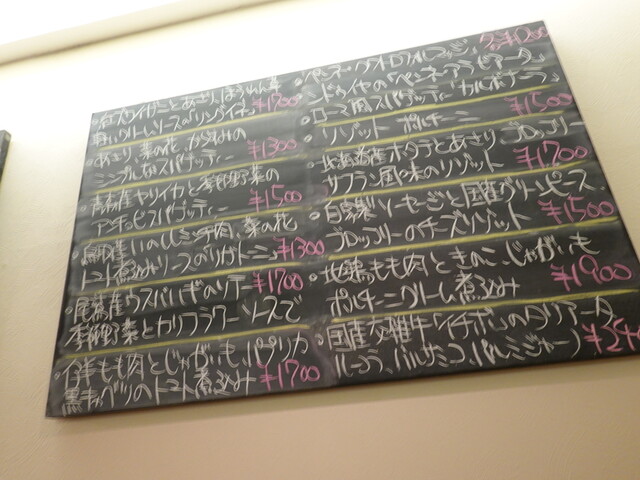 紅ズワイガニとあさり、ほうれん草
軽いクリームソースのリングイネ ¥1700
あさり、菜の花、からすみの
シンプルなスパゲッティー ¥1300
青森産ヤリイカと季節野菜の
アンチョビスパゲッティー ¥1500
鳥取産いのしし肉、菜の花
トマト煮込みソースのリガトーニ ¥1300
尾鷲産ウスバハギのソテー ¥1700
季節野菜とカリフラワーソースで
仔羊もも肉とじゃがいも、パプリカ
黒キャベツのトマト煮込み ¥1700
ペンネ・クアトロフォルマッジ
ンドゥイヤの「ペンネアラビアータ」
ローマ風スパゲッティー「カルボナーラ」
リゾット ポルチーニ ¥1500
北海道産ホタテとあさり ブロッコリー
サフラン風味のリゾット ¥1700
自家製ソーセージと国産グリーンピース
ブロッコリーのチーズリゾット ¥1500
地鶏もも肉ときのこ、じゃがいも
ポルチーニクリーム煮込み ¥1900
国産交雑牛「イチボ」のタリアータ
(ルーコラ、バルサミコ、パルミジャーノ)